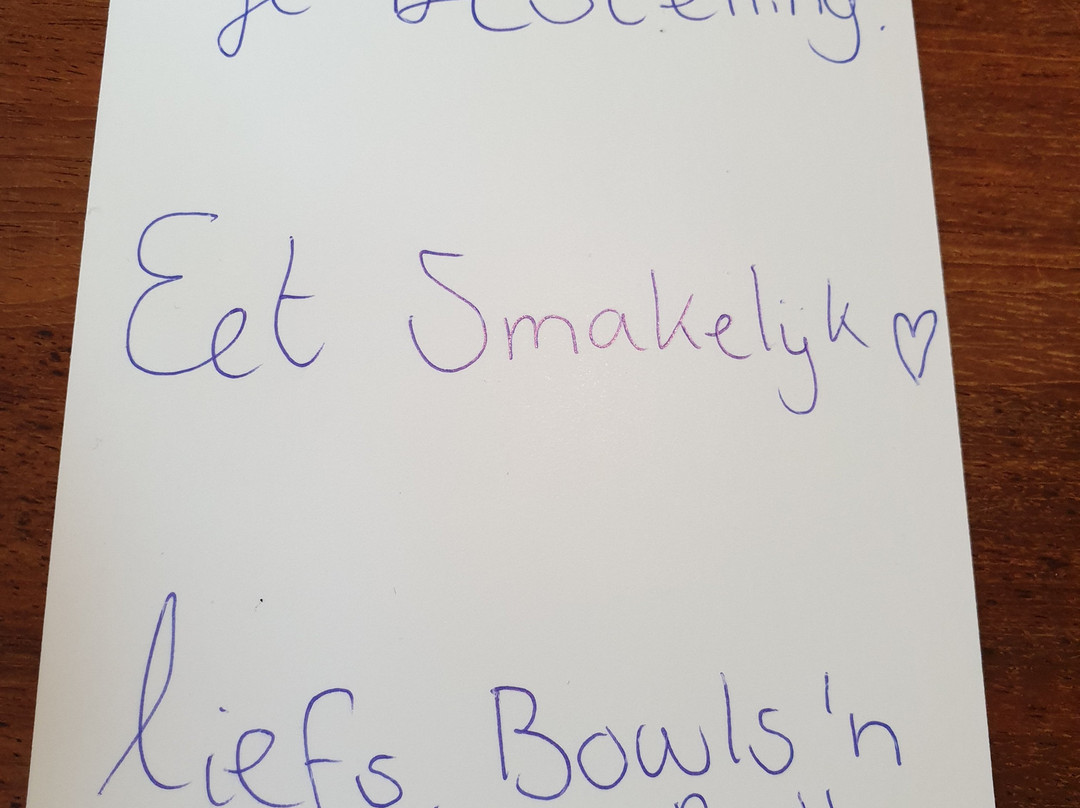 je bestelling.
Eet Smakelijk ♡
liefs Bowls'n